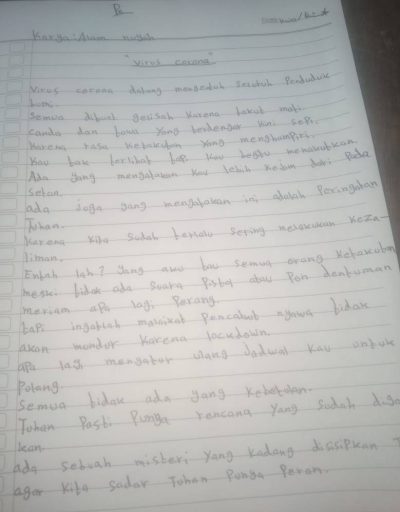 Karya: Alam nugah
"Virus corona"
Virus corona datang mengcabuh seluruh Penduduk
bomi.
Semua dibuat gelisah karena takut mati.
canda dan tawa yang terdengar kini sepi.
Karena rasa ketakutan yang menghampiri.
Kau tak terlihat tapi kau begitu menakutkan.
Ada yang mengatakan kau lebih kejam dari pada
setan.
ada Joga yang mengatakan ini adalah Peringatan
Tuhan.
Karena kita sudah terlalu sering melakukan keza-
liman.
Entah lah? yang aku tau semua orang ketakutan
meski tidak ada suara pistol atau pon dentuman
meriam apa lagi perang.
tapi ingatlah malaikat pencabut nyawa tidak
akan mondur karena lockdown.
apa lagi mengatur ulang Jadwal kau untuk
Polang.
Semua tidak ada yang kebetulan.
Tuhan Pasti Punya rencana yang sudah diga
kan.
ada sebuah misteri yang kadang disisipkan T
agar kita sadar Tuhan Punya Peran.